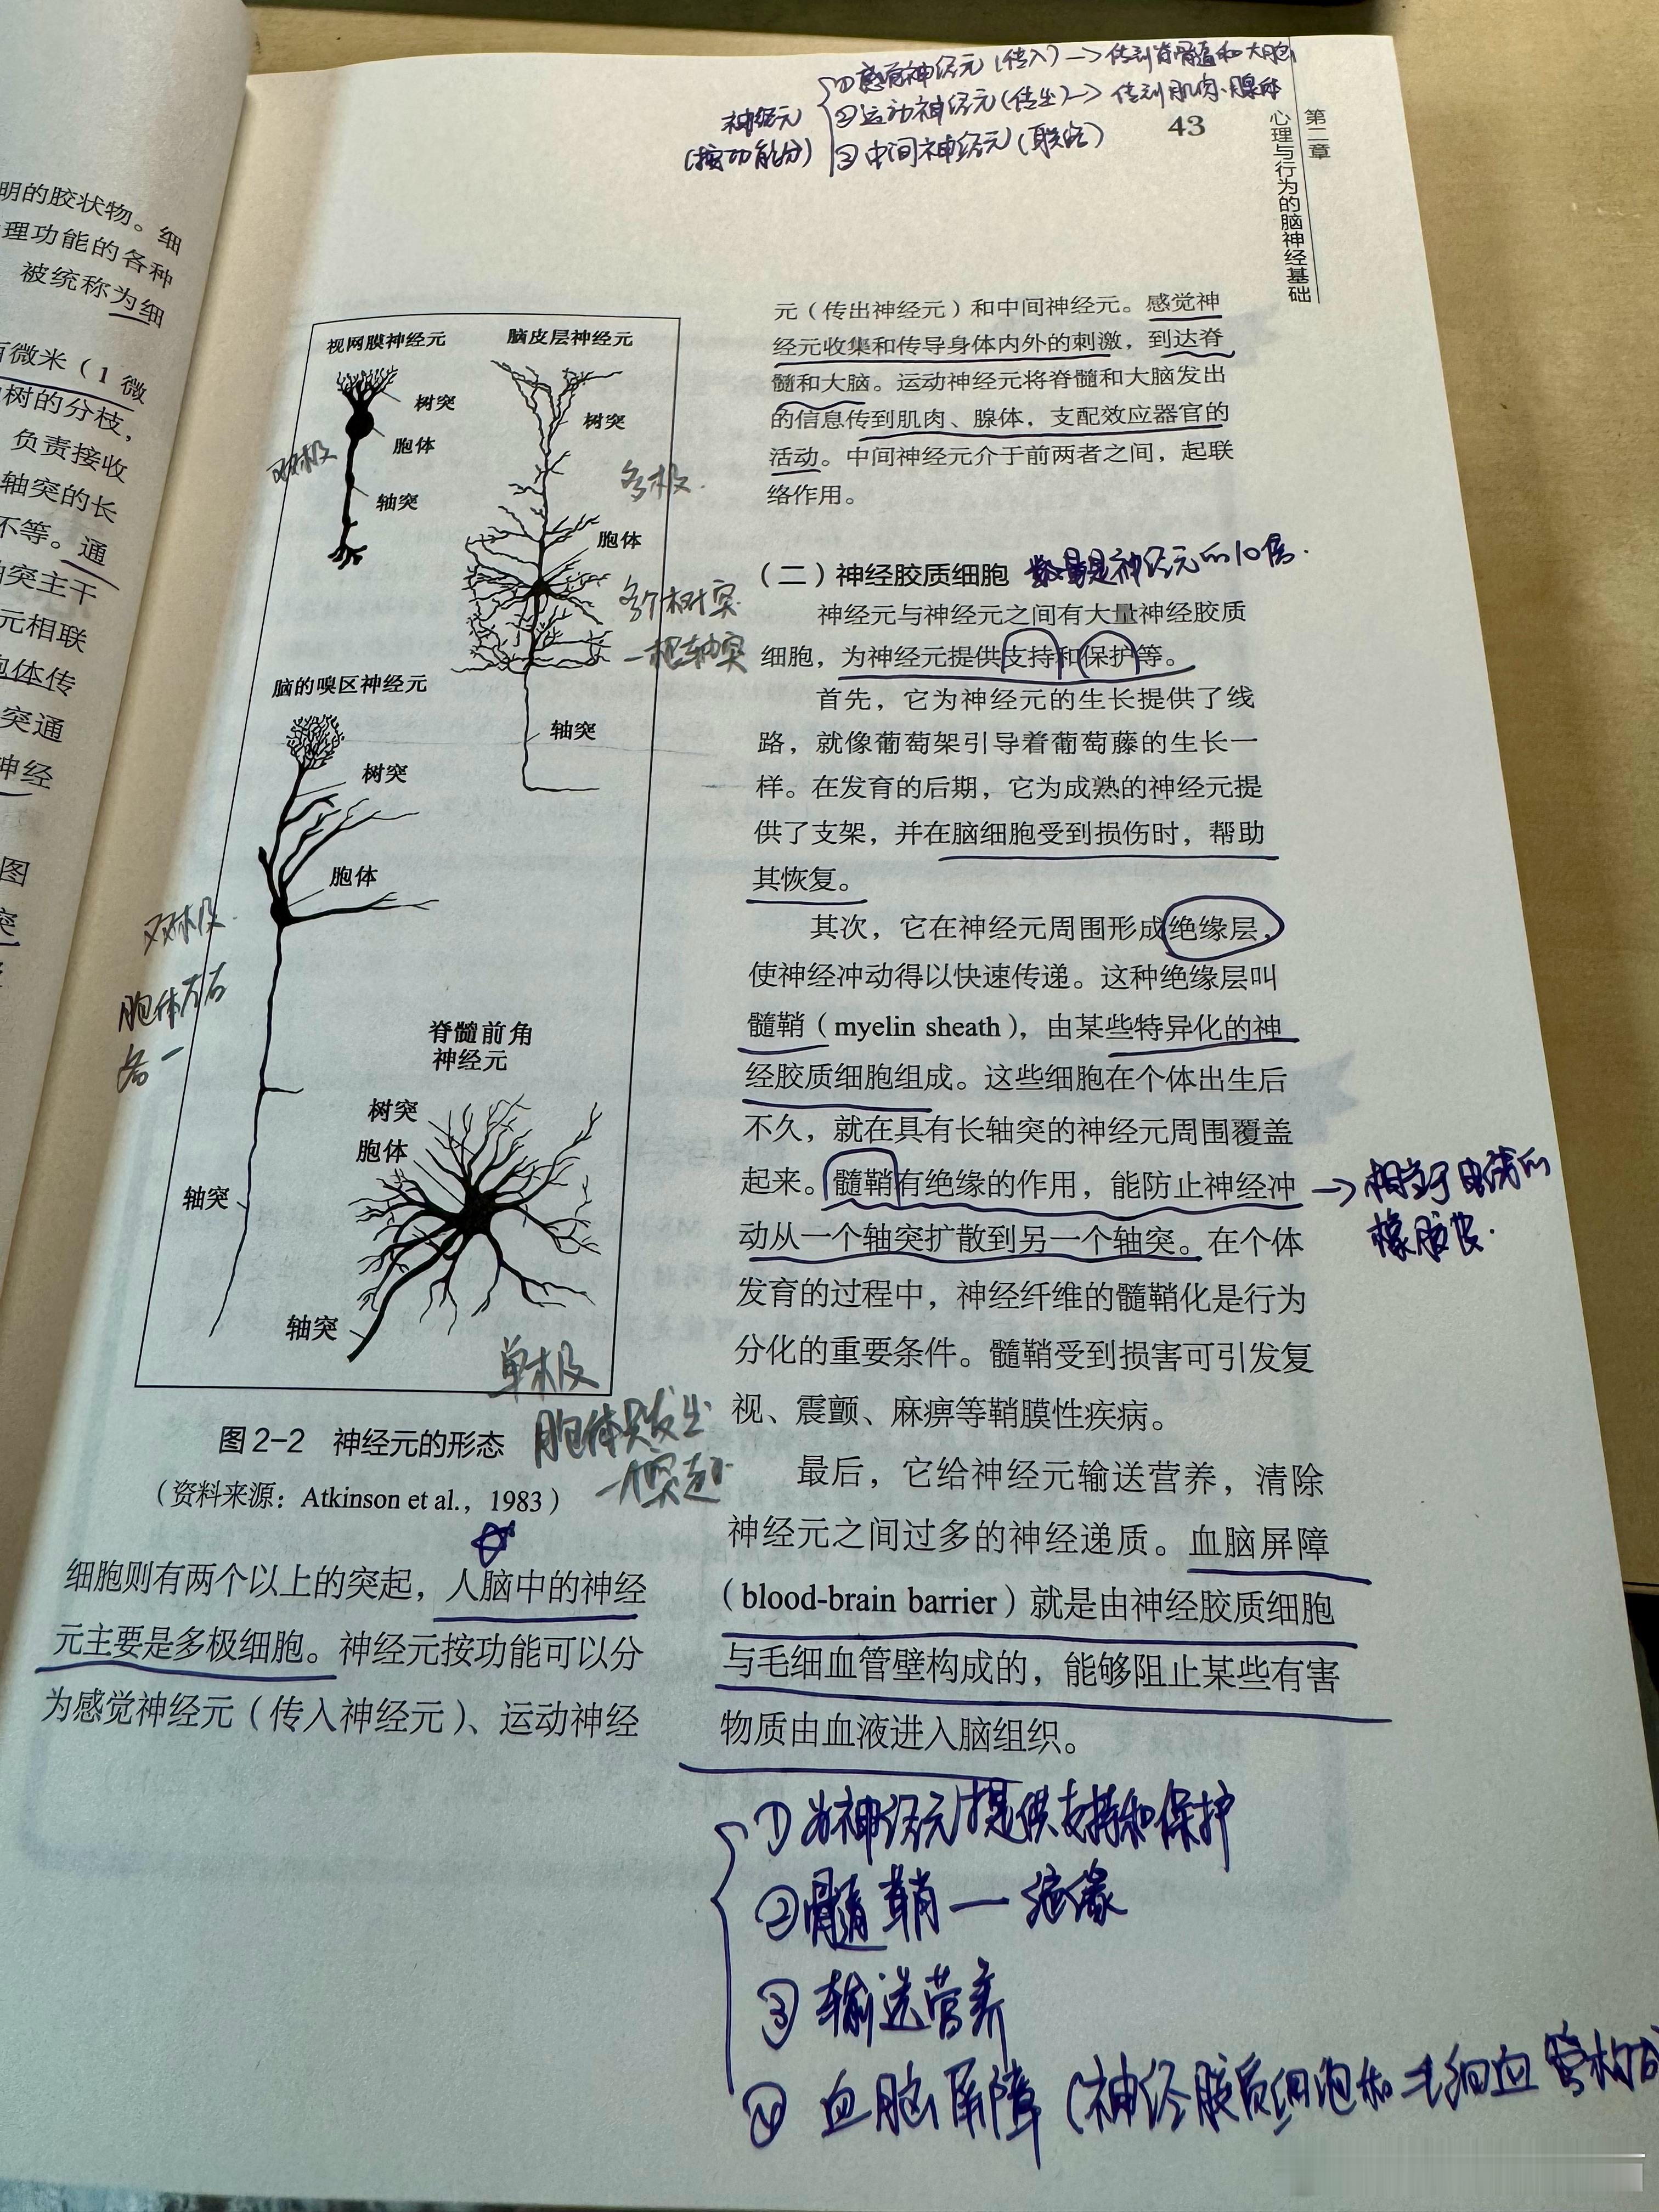 ①感觉神经元(传入)→传到脊髓和大脑
②运动神经元(传出)→传到肌肉、腺体
神经元
(按功能分)
③中间神经元(联络)
43
第二章
心理与行为的脑神经基础
明的胶状物。细
理功能的各种
被统称为细
微米(1微
树的分枝,
负责接收
轴突的长
不等。通
突主干
元相联
胞体传
突通
神经
图
突
视网膜神经元
脑皮层神经元
树突
胞体
轴突
双极
树突
多极
胞体
多个树突
一根轴突
轴突
脑的嗅区神经元
树突
胞体
双极
胞体左右
各一
轴突
脊髓前角
神经元
树突
胞体
轴突
单极
胞体只发出
一个突起
图2-2 神经元的形态
(资料来源:Atkinson et al.,1983)
细胞则有两个以上的突起,人脑中的神经
元主要是多极细胞。神经元按功能可以分
为感觉神经元(传入神经元)、运动神经
元(传出神经元)和中间神经元。感觉神
经元收集和传导身体内外的刺激,到达脊
髓和大脑。运动神经元将脊髓和大脑发出
的信息传到肌肉、腺体,支配效应器官的
活动。中间神经元介于前两者之间,起联
络作用。
(二)神经胶质细胞 数量是神经元的10倍.
神经元与神经元之间有大量神经胶质
细胞,为神经元提供支持和保护等。
首先,它为神经元的生长提供了线
路,就像葡萄架引导着葡萄藤的生长一
样。在发育的后期,它为成熟的神经元提
供了支架,并在脑细胞受到损伤时,帮助
其恢复。
其次,它在神经元周围形成绝缘层,
使神经冲动得以快速传递。这种绝缘层叫
髓鞘(myelin sheath),由某些特异化的神
经胶质细胞组成。这些细胞在个体出生后
不久,就在具有长轴突的神经元周围覆盖
起来。髓鞘有绝缘的作用,能防止神经冲
动从一个轴突扩散到另一个轴突。在个体
→相当于电线的
橡胶皮.
发育的过程中,神经纤维的髓鞘化是行为
分化的重要条件。髓鞘受到损害可引发复
视、震颤、麻痹等鞘膜性疾病。
最后,它给神经元输送营养,清除
神经元之间过多的神经递质。血脑屏障
(blood-brain barrier)就是由神经胶质细胞
与毛细血管壁构成的,能够阻止某些有害
物质由血液进入脑组织。
①为神经元提供支持和保护
②髓鞘—绝缘
③输送营养
④血脑屏障(神经胶质细胞和毛细血管构成